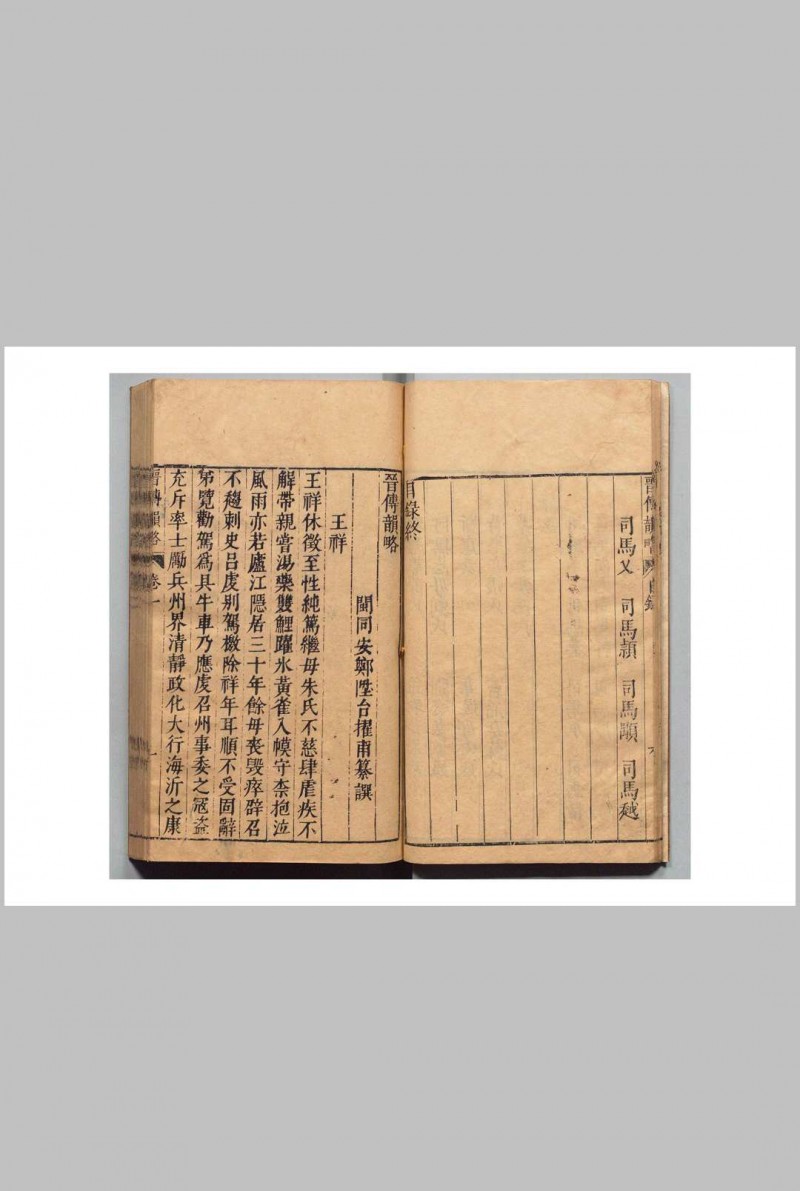 晉傳韻畧 目錄
司馬乂 司馬頴 司馬顒 司馬越
六
目錄終
晉傳韻略
閩同安鄭陞台擢甫纂譔
王祥
王祥休徵至性純篤繼母朱氏不慈肆虐疾不
解帶親嘗湯藥雙鯉躍氷黃雀入幙守柰抱泣
風雨亦若廬江隱居三十年餘母喪毀瘁辟召
不趨刺史呂虔别駕檄除祥年耳順不受固辭
弟覽勸駕爲具牛車乃應虔召州事委之冦盗
充斥率士勵兵州界清靜政化大行海沂之康
晉傳韻略 卷一
一